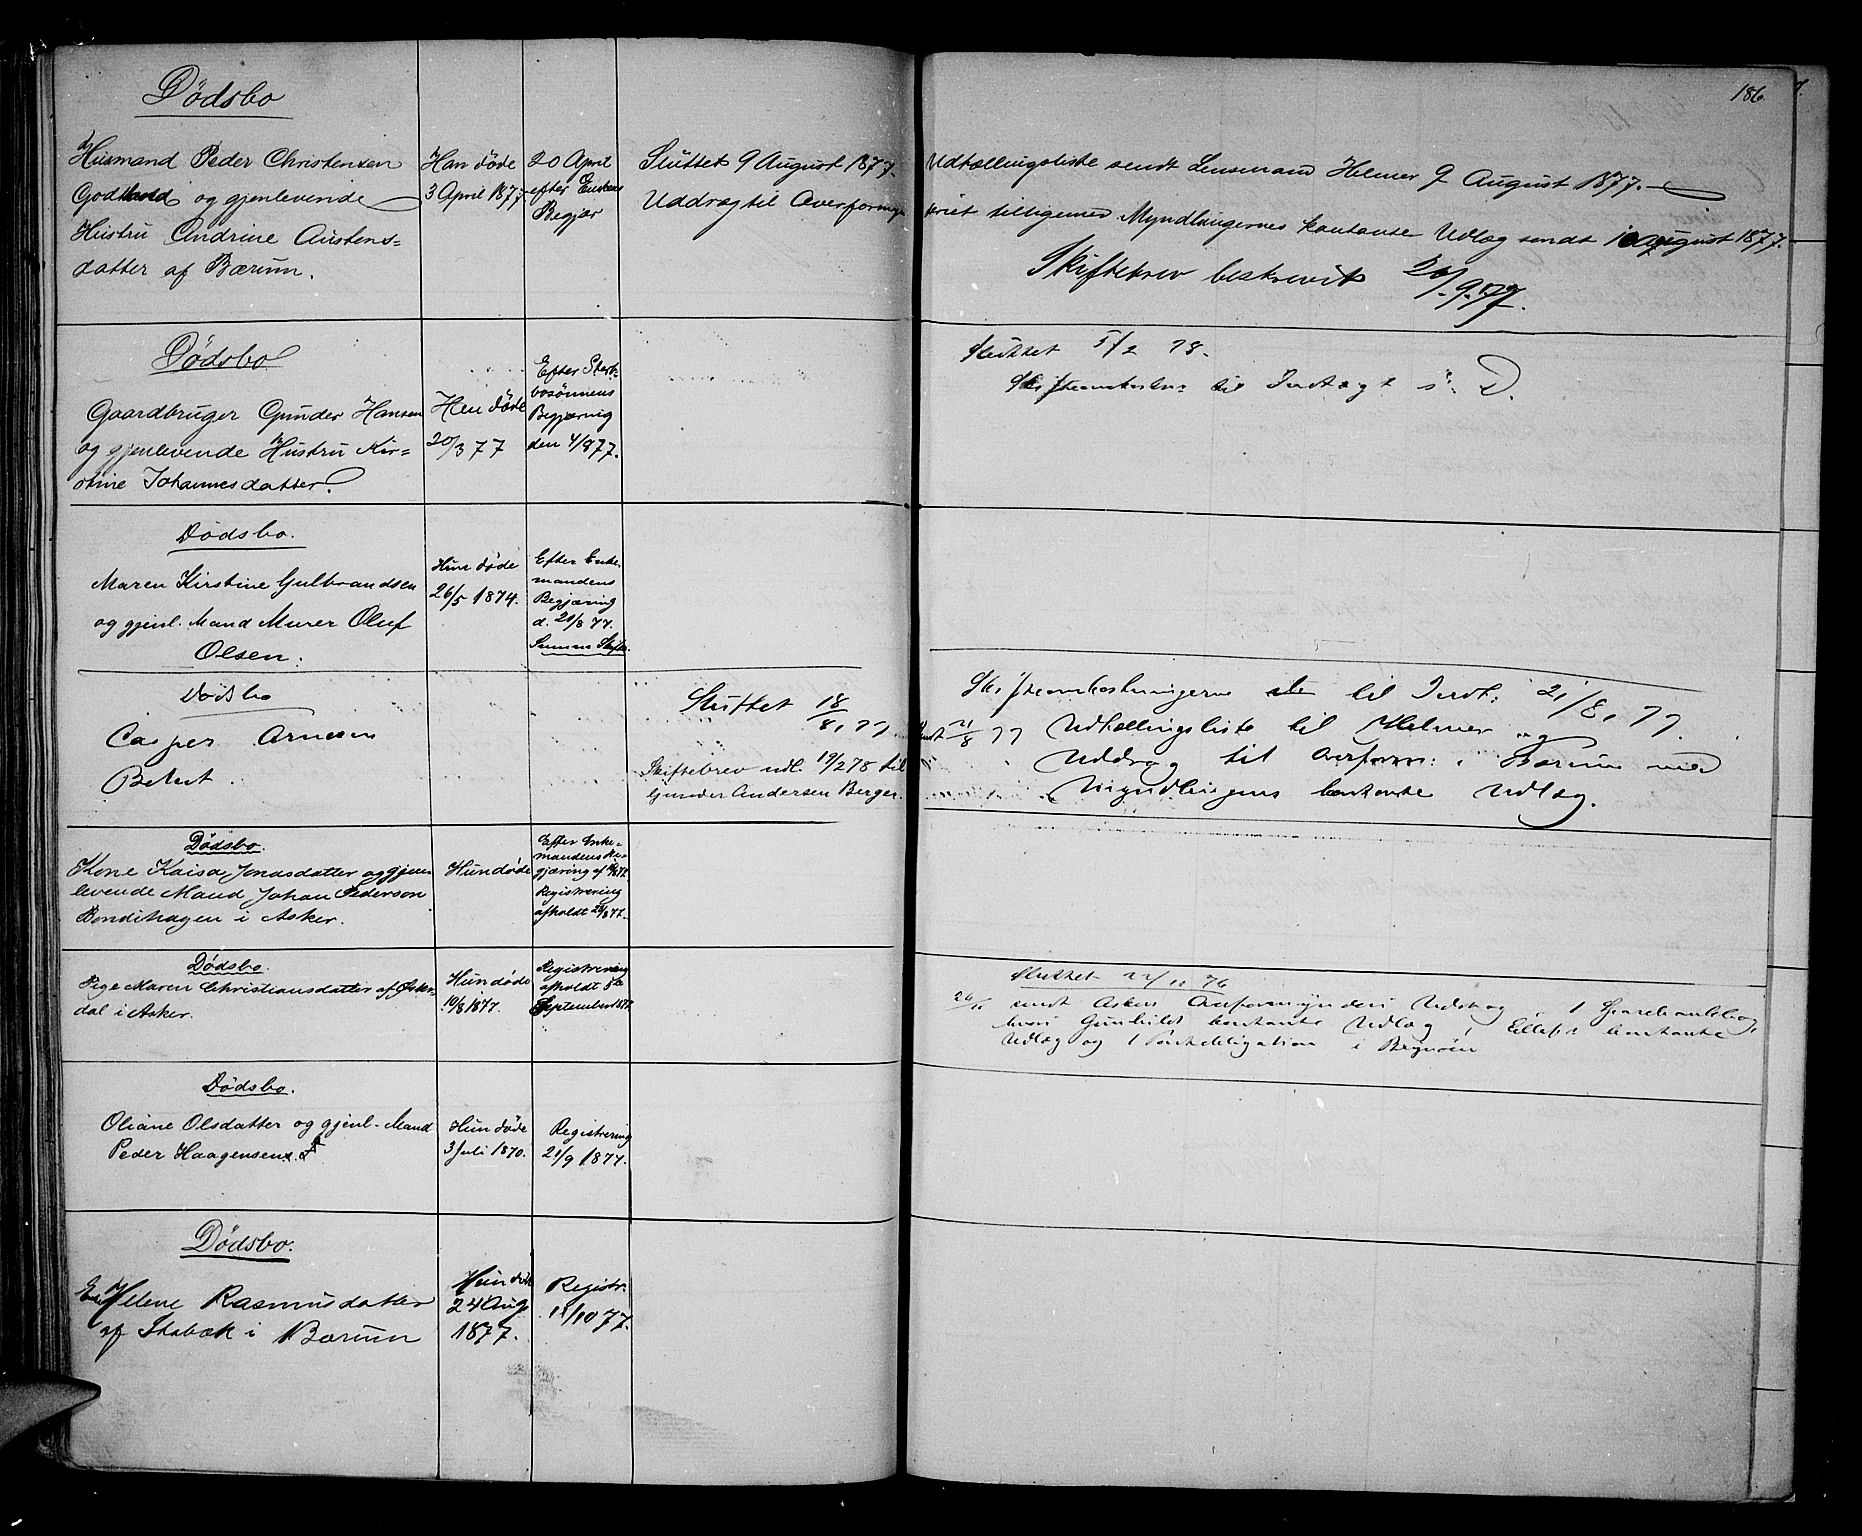 186.
Dødsbo
Husmand Peder Christensen
Godthaab og gjenlevende
Hustru Andrine Austens=
datter af Bærum.
Han døde
3 April 1877
20 April
efter Enkens
Begjær
Sluttet 9 August 1877.
Uddrag til Overformyn
Udtællingsliste sendt Lensmand Helmer 9 August 1877.
deriet tilligemed Myndlingernes kontante Udlæg sendt 10 August 1877.
Skiftebrev beskrevet 20/9.77.
Dødsbo
Gaardbruger Gunder Hansen
og gjenlevende Hustru Kir=
stine Johannesdatter.
Han døde
20/3 77
Efter Sterb-
bosönnens
Begjærnig
den 4/8 77.
Sluttet 5/2 78.
til Indtægt s. D.
Dødsbo.
Maren Kirstine Gulbrandsen
og gjenl. Mand Murer Oluf
Olsen.
Hun døde
26/5 1874.
Efter Enke-
mandens
Begjæring
d. 20/8 77.
Dødsbo
Casper Arnesen
Sluttet 18/8, 77
Skiftebrev udl. 19/2 78 til
Gunder Andersen Berger.
Skifteomkostningerne til Indt: 21/8, 77.
Sendt 21/8 77 Udtællingsliste til Helmer og
Uddrag til Overform: i Bærum med
Myndlingens kontante Udlæg.
Dødsbo.
Kone Kaisa Jonasdatter og gjen-
levende Mand Johan Pederson
Bondihagen i Asker.
Hun døde
Efter Enke-
mandens Be-
gjæring af
Registrering
afholdt 28/8 77.
Dødsbo.
Pige Maren Christiansdatter af
dal i Asker.
Hun døde
10/8 1877.
Registrering
afholdt 8de
September 1877
Sluttet
sendt Askers Overformynderi Uddrag, 1 Sparebankbog,
hvori Gunhilds kontante Udlæg, kontante
Udlæg og 1
Dødsbo.
Oliane Olsdatter og gjenl. Mand
Peder Haagensen.
Hun døde
3 Juli 1870.
Registrering
21/9 1877.
Dødsbo.
Enke Helene Rasmusdatter
af Stabæk i Bærum
Hun døde
24 Aug
1877.
Registr.
11/10 77.